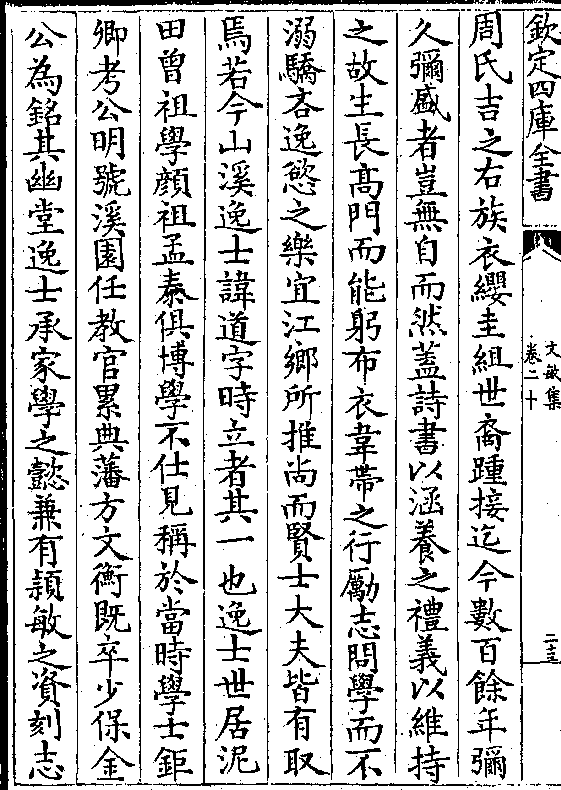 欽定四庫全書
文敏集
卷二十
二十三
周氏吉之右族衣纓圭組世裔踵接迄今數百餘年彌
久彌盛者豈無自而然蓋詩書以涵養之禮義以維持
之故生長高門而能躬布衣韋帶之行勵志問學而不
溺驕吝逸慾之樂宜江鄉所推尚而賢士大夫皆有取
焉若今山溪逸士諱道字時立者其一也逸士世居泥
田曾祖學顔祖孟泰俱博學不仕見稱於當時學士鉅
卿考公明號溪園任教官累典藩方文衡既卒少保金
公為銘其幽堂逸士承家學之懿兼有頴敏之資刻志